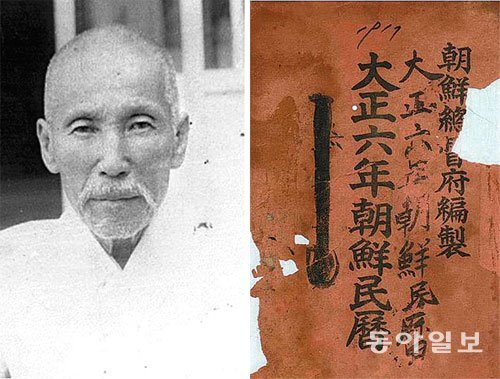 1917
朝鮮總督府編製
大正六年朝鮮民曆
大正六年朝鮮民曆
동아일보